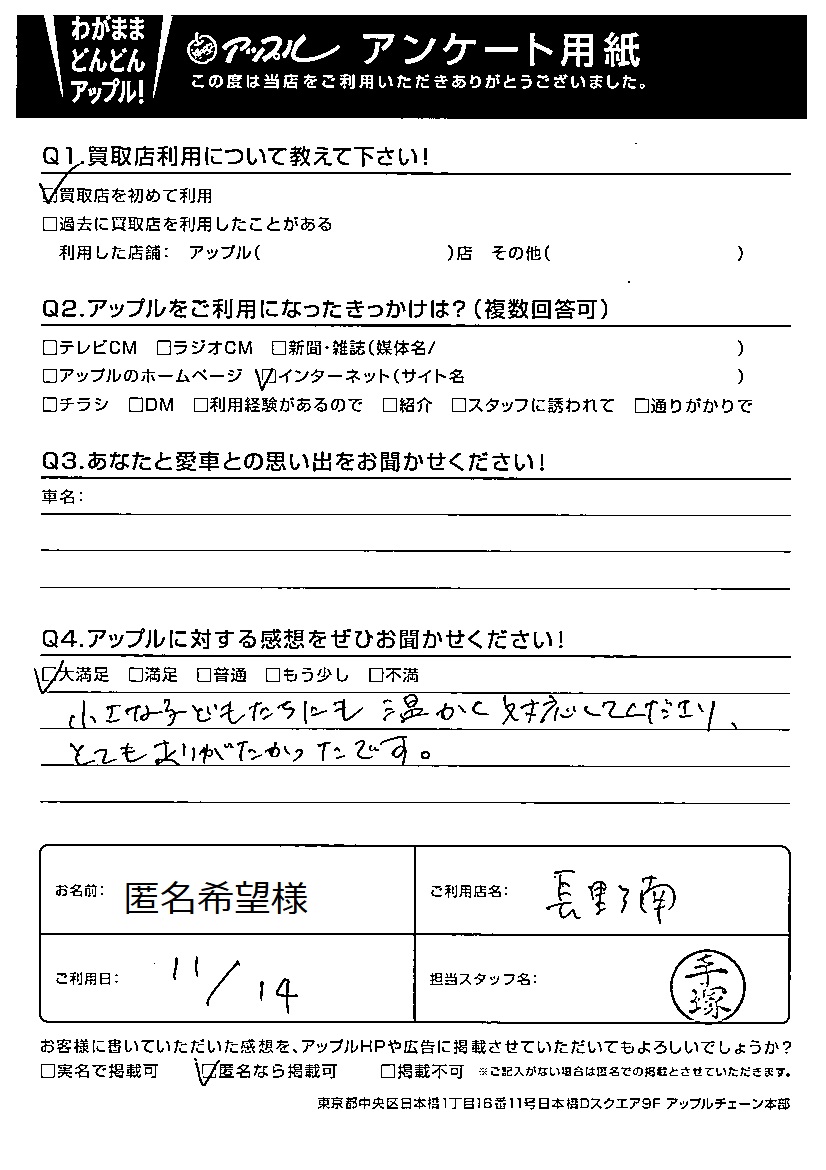 わがまま
どんどん
アップル!
アップル アンケート用紙
この度は当店をご利用いただきありがとうございました。
Q1.買取店利用について教えて下さい!
☑買取店を初めて利用
□過去に買取店を利用したことがある
利用した店舗: アップル( )店 その他( )
Q2.アップルをご利用になったきっかけは?(複数回答可)
□テレビCM □ラジオCM □新聞・雑誌(媒体名/ )
□アップルのホームページ ☑インターネット(サイト名 )
□チラシ □DM □利用経験があるので □紹介 □スタッフに誘われて □通りがかりで
Q3.あなたと愛車との思い出をお聞かせください!
車名:
Q4.アップルに対する感想をぜひお聞かせください!
☑大満足 □満足 □普通 □もう少し □不満
小さな子どもたちにも 温かく対応してくださり、
とてもありがたかったです。
お名前: 匿名希望様 ご利用店名: 長野南
ご利用日: 11/14 担当スタッフ名: 手塚
お客様に書いていただいた感想を、アップルHPや広告に掲載させていただいてもよろしいでしょうか?
□実名で掲載可 ☑匿名なら掲載可 □掲載不可 ※ご記入がない場合は匿名での掲載とさせていただきます。
東京都中央区日本橋1丁目16番11号日本橋Dスクエア9F アップルチェーン本部